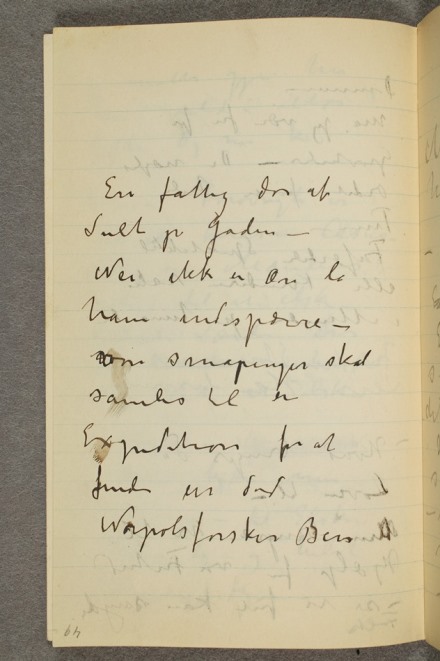 En fattig dør af
Sult på Gaden —
Nei ikke en Øre la
ham indspærre —
vore småpenger skal
samles til en
Expedition for at
finde en død
Norpolsforsker Ben
64